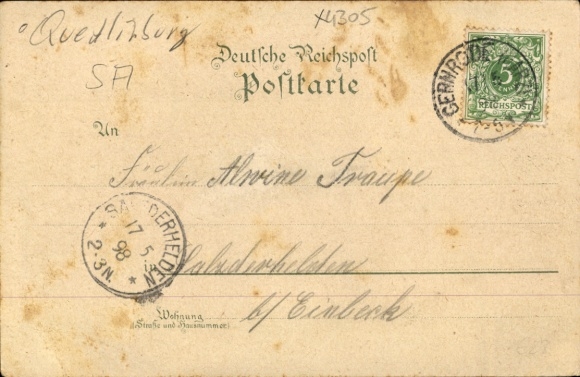 Quedlinburg
SA
X4305
Deutsche Reichspost
Postkarte
5
REICHSPOST
GERNRODE
An
Fräulein Alwine Traupe
SALZDERHELDEN
17 5
98
2-3N.
in
Salzderhelden
b/ Einbeck
Wohnung
(Straße und Hausnummer)